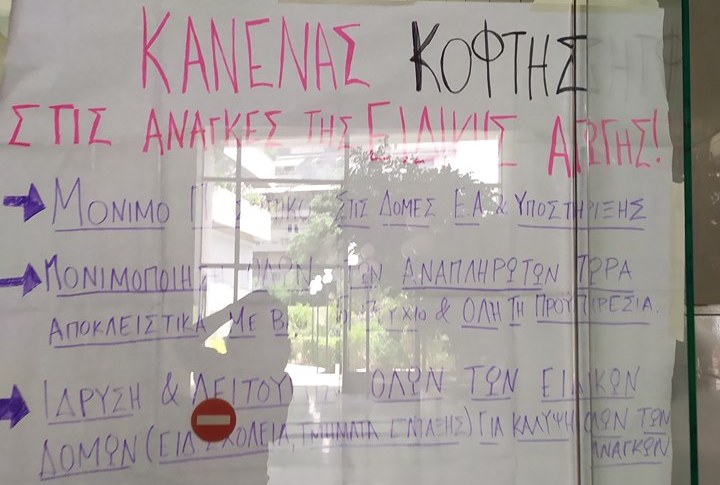 ΚΑΝΕΝΑΣ ΚΟΦΤΗΣ
ΣΤΙΣ ΑΝΑΓΚΕΣ ΤΗΣ ΕΙΔΙΚΗΣ ΑΓΩΓΗΣ!
ΜΟΝΙΜΟ ΣΤΙΣ ΔΟΜΕΣ Ε.Α. & ΥΠΟΣΤΗΡΙΞΗΣ
ΤΩΝ ΑΝΑΠΛΗΡΩΤΩΝ ΤΩΡΑ
ΑΠΟΚΛΕΙΣΤΙΚΑ ΜΕ & ΟΛΗ ΤΗ ΠΡΟΥΠΗΡΕΣΙΑ.
ΙΔΡΥΣΗ & ΟΛΩΝ ΤΩΝ ΕΙΔΙΚΩΝ
ΔΟΜΩΝ (ΕΙΔ. ΣΧΟΛΕΙΑ, ΤΜΗΜΑΤΑ ΕΝΤΑΞΗΣ) ΓΙΑ ΚΑΛΥΨΗ ΟΛΩΝ ΤΩΝ
ΑΝΑΓΚΩΝ